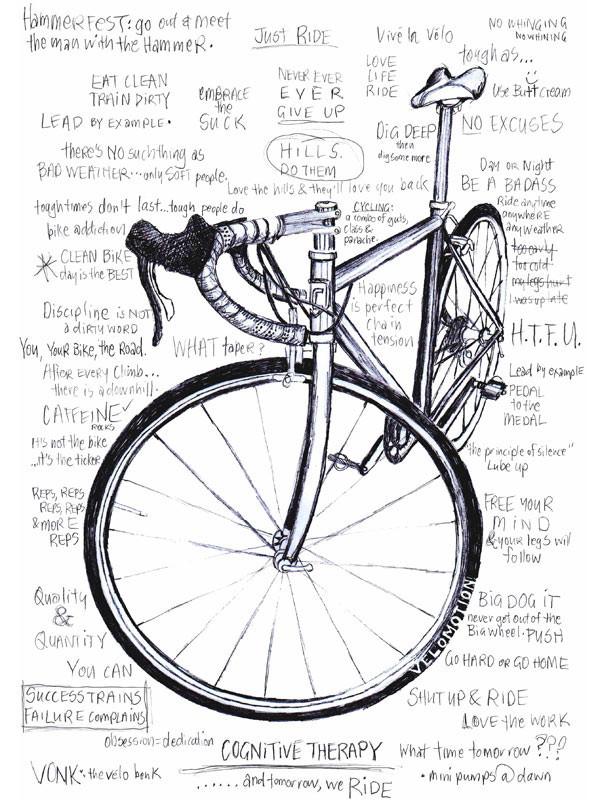 HAMMERFEST: go out & meet
the man with the HAMMER.
JUST RIDE
Vive In Velo
NO WHINGING
NO WHINING
EAT CLEAN
TRAIN DIRTY
EMBRACE
the
SUCK
NEVER EVER
EVER
GIVE UP
LOVE
LIFE
RIDE
tough as...
Use Butt Cream
LEAD BY EXAMPLE.
DIG DEEP
then
dig some more
NO EXCUSES
there's NO such thing as
BAD WEATHER...only SOFT people.
HILLS.
DO THEM
Love the hills & they'll love you back
Day or Night
BE A BADASS
Ride anytime
anywhere
any weather
too early
too cold
my legs hurt
I was up late
tough times don't last...tough people do
bike addiction
CYCLING:
a combo of guts,
class &
panache.
* CLEAN BIKE
day is the BEST
Happiness
is perfect
chain
tension
Discipline is NOT
a dirty word
H.T.F.U.
You, Your Bike, the Road.
WHAT taper?
After every climb...
there is a downhill.
Lead by example
PEDAL
to the
MEDAL
CAFFEINE
ROCKS
It's not the bike
...it's the ticker
"the principle of silence"
Lube up
REPS, REPS
REPS, REPS
& MORE
REPS
FREE YOUR
MIND
& your legs will
follow
Quality
&
QUANTITY
BIG DOG IT
never get out of the
Big wheel. PUSH
VELOMOTION
YOU CAN
GO HARD OR GO HOME
SUCCESS TRAINS
FAILURE COMPLAINS
SHUT UP & RIDE
LOVE the WORK
obsession = dedication
COGNITIVE THERAPY
What time tomorrow ???
VONK: the velo bonk
......and tomorrow, we RIDE
• mini pumps @ dawn